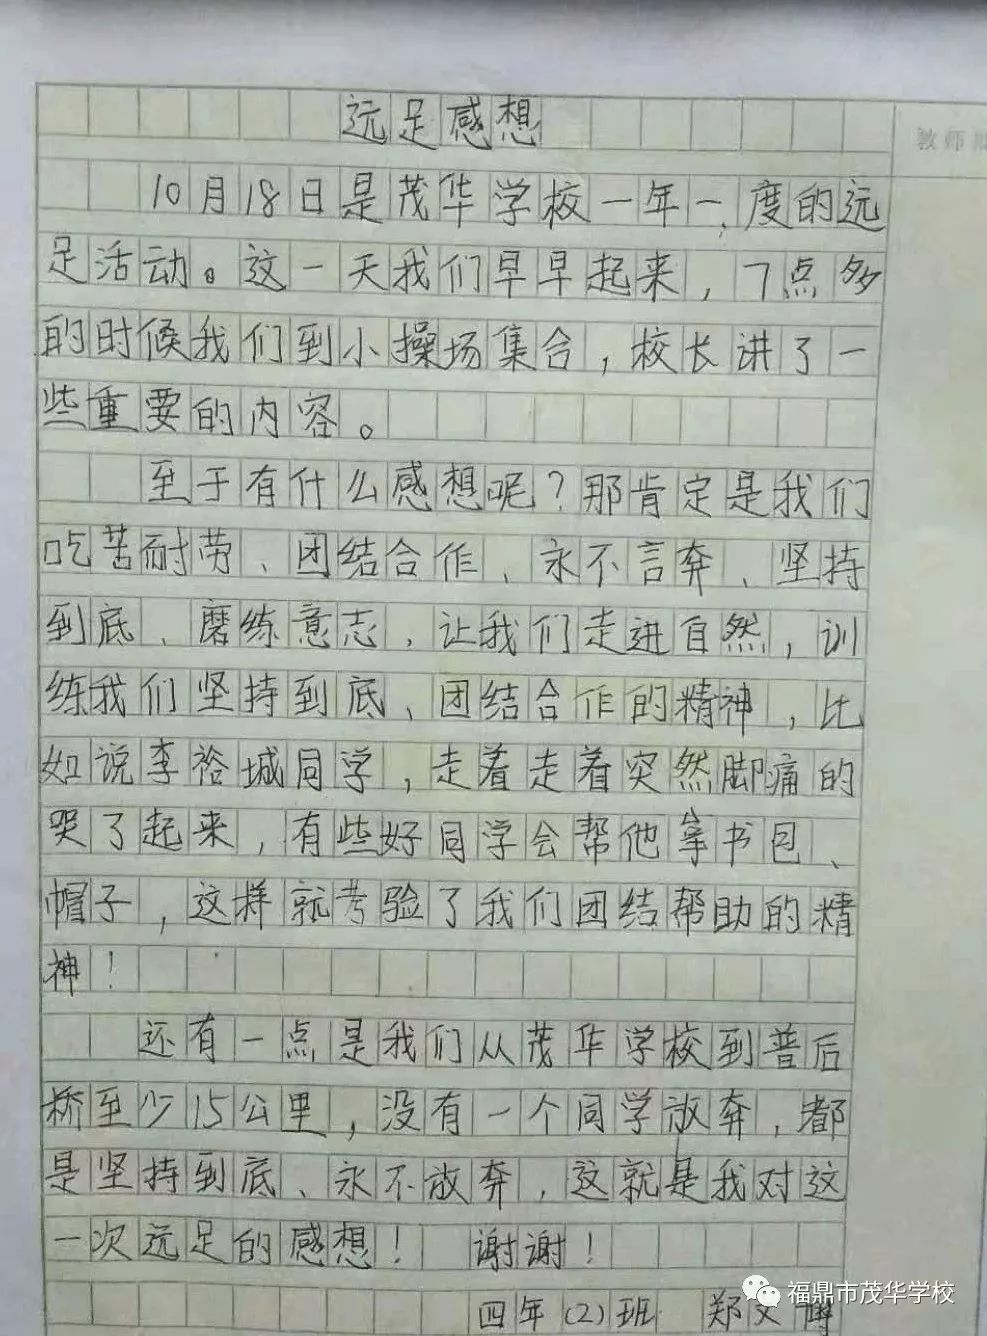 远足感想
教师
10月18日是茂华学校一年一度的远
足活动。这一天我们早早起来，7点多
的时候我们到小操场集合，校长讲了一
些重要的内容。
至于有什么感想呢？那肯定是我们
吃苦耐劳、团结合作、永不言弃、坚持
到底、磨练意志，让我们走进自然，训
练我们坚持到底、团结合作的精神，比
如说李裕城同学，走着走着突然脚痛的
哭了起来，有些好同学会帮他拿书包、
帽子，这样就考验了我们团结帮助的精
神！
还有一点是我们从茂华学校到普后
桥至少15公里，没有一个同学放弃，都
是坚持到底、永不放弃，这就是我对这
一次远足的感想！谢谢！
四年(2)班 郑文博
福鼎市茂华学校